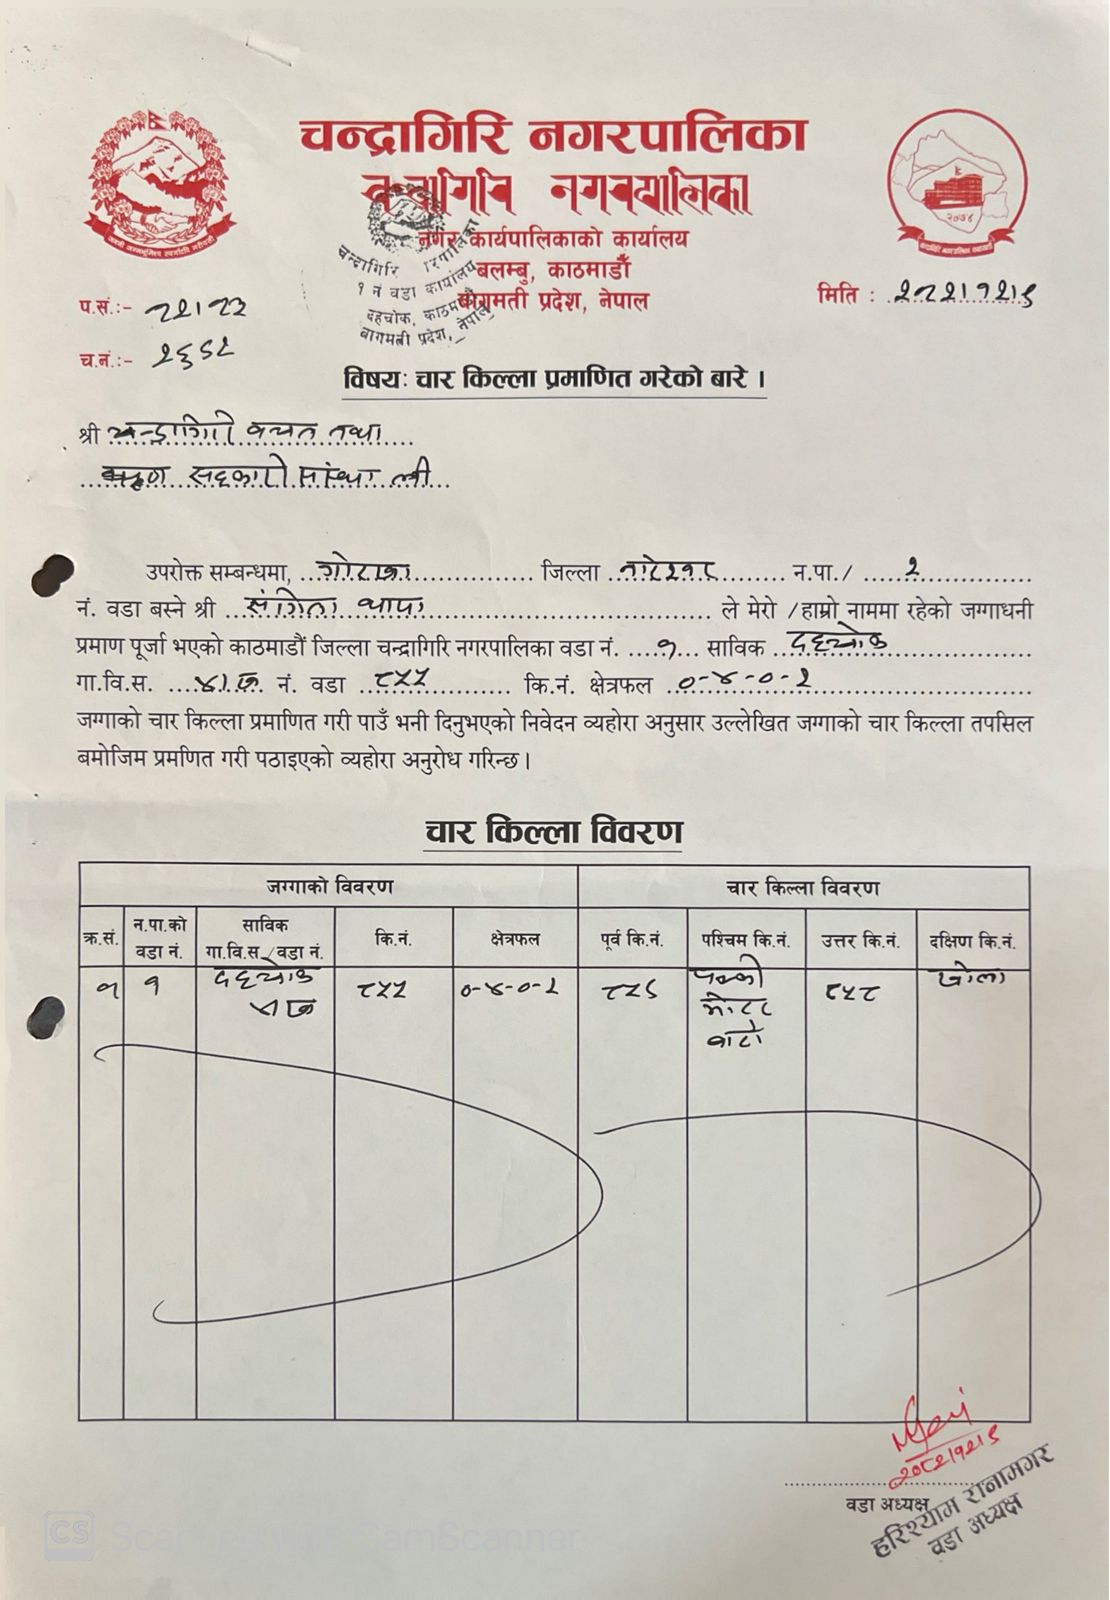 चन्द्रागिरि नगरपालिका
नगर कार्यपालिकाको कार्यालय
बलम्बु, काठमाडौँ
बागमती प्रदेश, नेपाल
चन्द्रागिरि नगरपालिका
१ नं वडा कार्यालय
दहचोक, काठमाडौं
बागमती प्रदेश, नेपाल
२०७४
प.सं.:-
मिति :
च.नं.:-
विषय: चार किल्ला प्रमाणित गरेको बारे ।
श्री चन्द्रागिरी बचत तथा
ऋण सहकारी संस्था ली
उपरोक्त सम्बन्धमा, गोरखा जिल्ला न.पा./ २
नं. वडा बस्ने श्री संगिता थापा ले मेरो /हाम्रो नाममा रहेको जग्गाधनी
प्रमाण पूर्जा भएको काठमाडौं जिल्ला चन्द्रागिरि नगरपालिका वडा नं. १ साविक दहचोक
गा.वि.स. नं. वडा ८५५ कि.नं. क्षेत्रफल ०-४-०-२
जग्गाको चार किल्ला प्रमाणित गरी पाउँ भनी दिनुभएको निवेदन व्यहोरा अनुसार उल्लेखित जग्गाको चार किल्ला तपसिल
बमोजिम प्रमणित गरी पठाइएको व्यहोरा अनुरोध गरिन्छ ।
चार किल्ला विवरण
जग्गाको विवरण चार किल्ला विवरण
क्र.सं. न.पा.को वडा नं. साविक गा.वि.स./वडा नं. कि.नं. क्षेत्रफल पूर्व कि.नं. पश्चिम कि.नं. उत्तर कि.नं. दक्षिण कि.नं.
१ १ दहचोक ८५५ ०-४-०-२ पक्की मोटर बाटो ८५८ खोला
वडा अध्यक्ष
हरिश्याम रानामगर
वडा अध्यक्ष
CS CamScanner